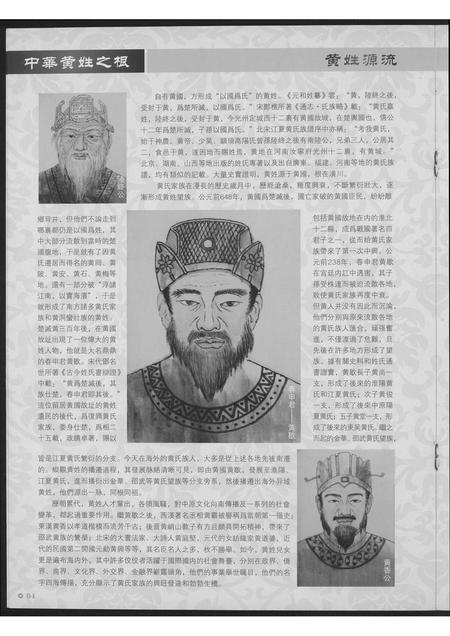 中華黄姓之根
黄姓源流
自有黄國,方形成“以國爲氏”的黄姓。《元和姓纂》雲:“黄,陸終之後,
受封于黄,爲楚所滅,以國爲氏。”宋鄭樵所著《通志·氏族略》載:“黄氏嬴
姓,陸終之後,受封于黄,今光州定城西十二裏有黄國故城,在楚輿國也。僖公
十二年爲楚所滅,子孫以國爲氏。”北宋江夏黄氏族譜序中亦稱:“考我黄氏,
始于神農、黄帝、少昊、顓頊高陽氏曾孫陸終之後有南陸公,兄弟三人,公居其
二,食邑于黄,遂因地而賜姓焉,黄地在河南汝寧府光州十二裏,有黄城。”
北京、湖南、山西等地出版的姓氏專著以及出自廣東、福建、河南等地的黄氏族
譜,均有類似的記載。大量史實證明,黄姓源于黄國,根在潢川。
黄氏家族在漫長的歷史歲月中,歷經滄桑,幾度興衰,不斷繁衍壯大,逐
漸形成黄姓望族。公元前648年,黄國爲楚滅後,國亡家破的黄國臣民,紛紛離
鄉背井,但他們不論走到
哪裏都仍是以國爲姓,其
中大部分流散到當時的楚
國腹地,于是就有了因黄
氏遷居而得名的黄岡、黄
陂、黄安、黄石、黄梅等
地。還有一部分被“浮諸
江南,以實海濱”,于是
就形成了南方諸多黄氏家
族和黄洞蠻壯族的黄姓。
楚滅黄三百年後,在黄國
故址出現了一位偉大的黄
姓人物,他就是大名鼎鼎
的春申君黄歇。宋代鄧名
世所著《古今姓氏書辯證》
中載:“黄爲楚滅後,其
族仕楚,春申君即其後。”
這位前居黄國故址的黄姓
遺民的後代,爲復興黄氏
家族,委身仕楚,爲相二
十五載,政績卓著,賜以
包括黄國故地在内的淮北
十二縣,成爲戰國著名四
君子之一,從而給黄氏家
族帶來了第一次中興。公
元前238年,春申君黄歇
在宫廷内訌中遇害,其子
孫受株連而被迫流散各地,
致使黄氏家族再度中衰。
但黄人并没有因此而沉淪,
他們分别與原來流散各地
的黄氏族人匯合,頑强奮
進,不僅渡過了危難,且
先後在許多地方形成了望
族。據有關史料和姓氏通
書證實,黄歇長子黄尚一
支,形成了後來的淮陽黄
氏和江夏黄氏;次子黄俊
一支,形成了後來中原陽
夏黄氏;五子黄堂一支,形
成了後來的東吴黄氏。繼之
而起的金華、邵武黄氏望族,
皆是江夏黄氏繁衍的分支。今天在海外的黄氏族人,大多是從上述各地先後南遷
的。縱觀黄姓的播遷過程,其發展脉絡清晰可見,即由黄國黄歇,發展至淮陽、
江夏黄氏,進而播衍出金華、邵武等黄氏望族等分支旁系,然後播遷出海外异域
黄姓。他們源出一脉,同根同祖。
歷朝累代,黄姓人才輩出,各領風騷,對中原文化向南傳播及一系列的社會
變革,都起過重要作用。繼黄歇之後,西漢著名丞相黄霸被譽爲爲官朝第一循吏;
東漢黄香以孝道楷模而流芳千古;後晋黄峭山教子有方且頗具開拓精神,帶來了
邵武黄族的繁榮;北宋的大書法家、大詩人黄庭堅,元代的女紡織家黄道婆,近
代的民國第二開國元勳黄興等等,其名臣名人之多,枚不勝舉。如今,黄姓兒女
更是遍布海内外,其中許多佼佼者活躍于國際國内的社會舞臺,分别在政界、僑
界、商界、文化界、外交界、金融界嶄露頭角,他們的事業舉世矚目,他們的名
字四海傳揚,充分顯示了黄氏家族的興旺發達和勃勃生機。
春申君——黄歇
黄香公
04